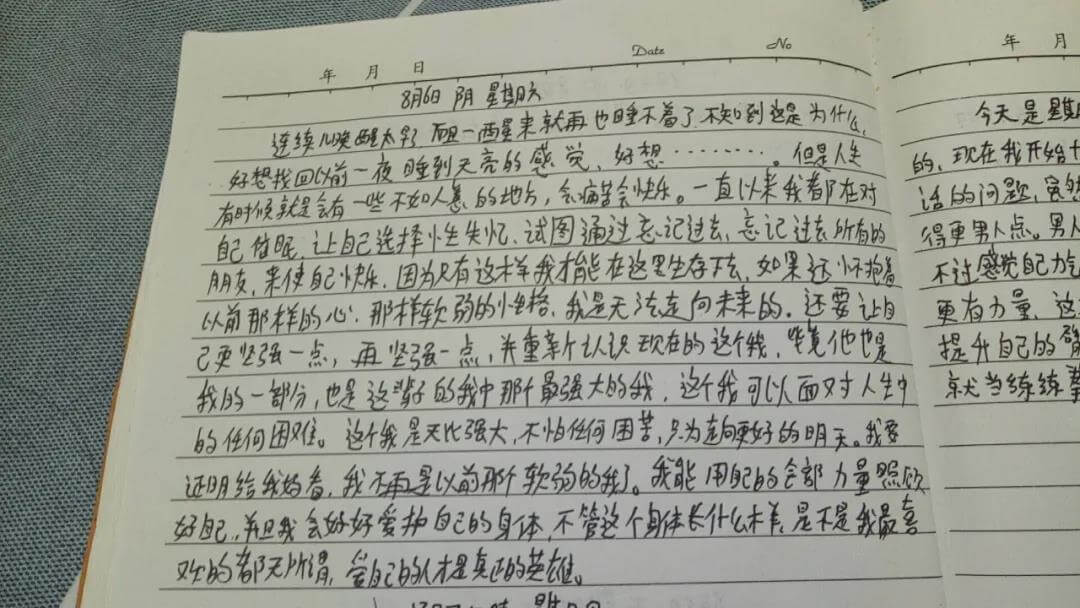 Date No
年 月 日
8月6日 阴 星期六
连续几晚醒太早了 而且一醒来就再也睡不着了.不知到这是为什么,
好想找回以前一夜睡到天亮的感觉,好想………。但是人生
有时候就是会有一些不如人意的地方,会痛苦会快乐。一直以来我都在对
自己催眠.让自己选择性失忆.试图通过忘记过去,忘记过去所有的
朋友,来使自己快乐.因为只有这样我才能在这里生存下去,如果还怀抱着
以前那样的心.那样软弱的性格.我是无法走向未来的.还要让自
己更坚强一点,再坚强一点,并重新认识现在的这个我,毕竟他也是
我的一部分,也是这辈子的我中那个最强大的我,这个我可以面对人生中
的任何困难。这个我是无比强大,不怕任何困苦,只为走向更好的明天。我要
证明给我的看,我不再是以前那个软弱的我了。我能用自己的全部力量照顾
好自己,并且我会好好爱护自己的身体,不管这个身体长什么样,是不是我最喜
欢的都无所谓,爱自己的人才是真正的英雄。
年 月
今天是星期
的,现在我开始
话的问题,虽然
得更男人点。男人
不过感觉自己力气
更有力量,这
提升自己的
就当练练